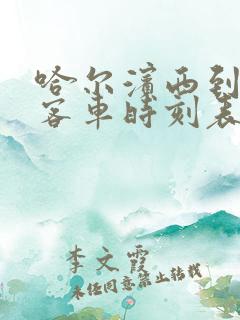 哈尔滨西到
客车时刻表
李文霞
未经同意禁止转载